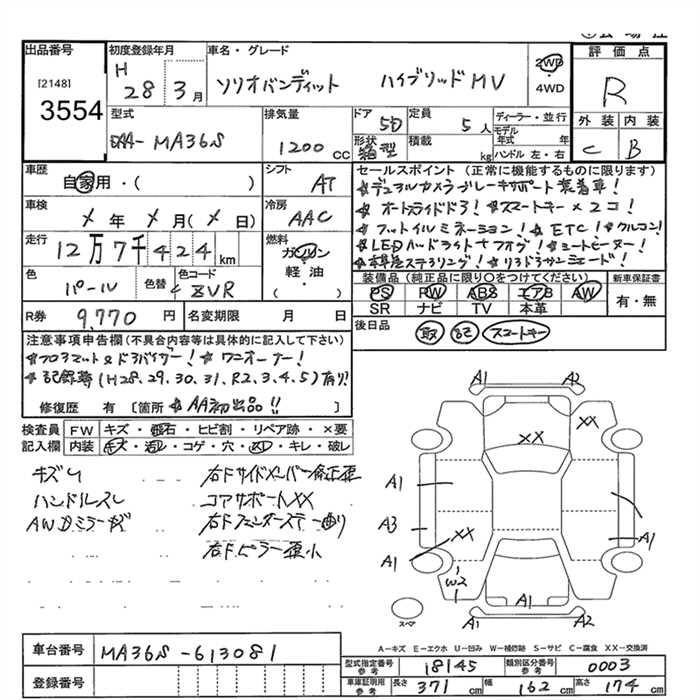 出品番号
[2148]
3554
初度登録年月
H 28 3月
車名・グレード
ソリオバンディット ハイブリッドMV
2WD
4WD
評価点
R
外装 内装
C B
型式
DAA-MA36S
排気量
1200 CC
ドア
5D
形状
箱型
定員
5人
積載
kg
ディーラー・並行
モデル年式 年
ハンドル 左・右
車歴
自家用・( )
シフト
AT
車検
メ年 メ月(メ日)
冷房
AAC
走行
12万7千424km
燃料
ガソリン
軽油
( )
色
パール
色替
色コード
ZVR
R券
9,770円
名変期限 月 日
セールスポイント(正常に機能するものに限ります)
☆デュアルカメラブレーキサポート装着車!
☆オートスライドドア! ☆スマートキー×2コ!
☆フットイルミネーション! ☆ETC! ☆クルコン!
☆LEDヘッドライト+フォグ! ☆シートヒーター!
☆本革巻ステアリング! ☆リヤドアサンシェード!
装備品(純正品に限り○をつけてください)
PS PW ABS エアB AW
SR ナビ TV 本革
新車保証書
有・無
後日品
取 記 スマートキー
注意事項申告欄(不具合内容等は具体的に記入して下さい)
☆フロアマット&ドアバイザー! ☆ワンオーナー!
☆記録簿(H28.29.30.31、R2,3,4,5)有り!
修復歴 有 [箇所 ☆AA初出品!!
検査員記入欄
FW キズ・飛石・ヒビ割・リペア跡・×要
内装 キズ・汚レ・コゲ・穴・スレ・キレ・破レ
キズU
ハンドルスレ
AWDミラーキズ
右Fサイドメンバー修正歪
コアサポートXX
右Fフェンダーステー曲り
右Fピラー歪小
A1 A2
XX
XX
A1
A3
XX
A1
W2
A1
A1
A1
A1 A2
スペア
A-キズ E-エクボ U-凹み W-補修跡 S-サビ C-腐食 XX-交換済
車台番号
MA36S-613081
登録番号
型式指定番号参考 18145
類別区分番号参考 0003
車庫証明用参考 長さ 371cm 幅 162cm 高さ 174cm